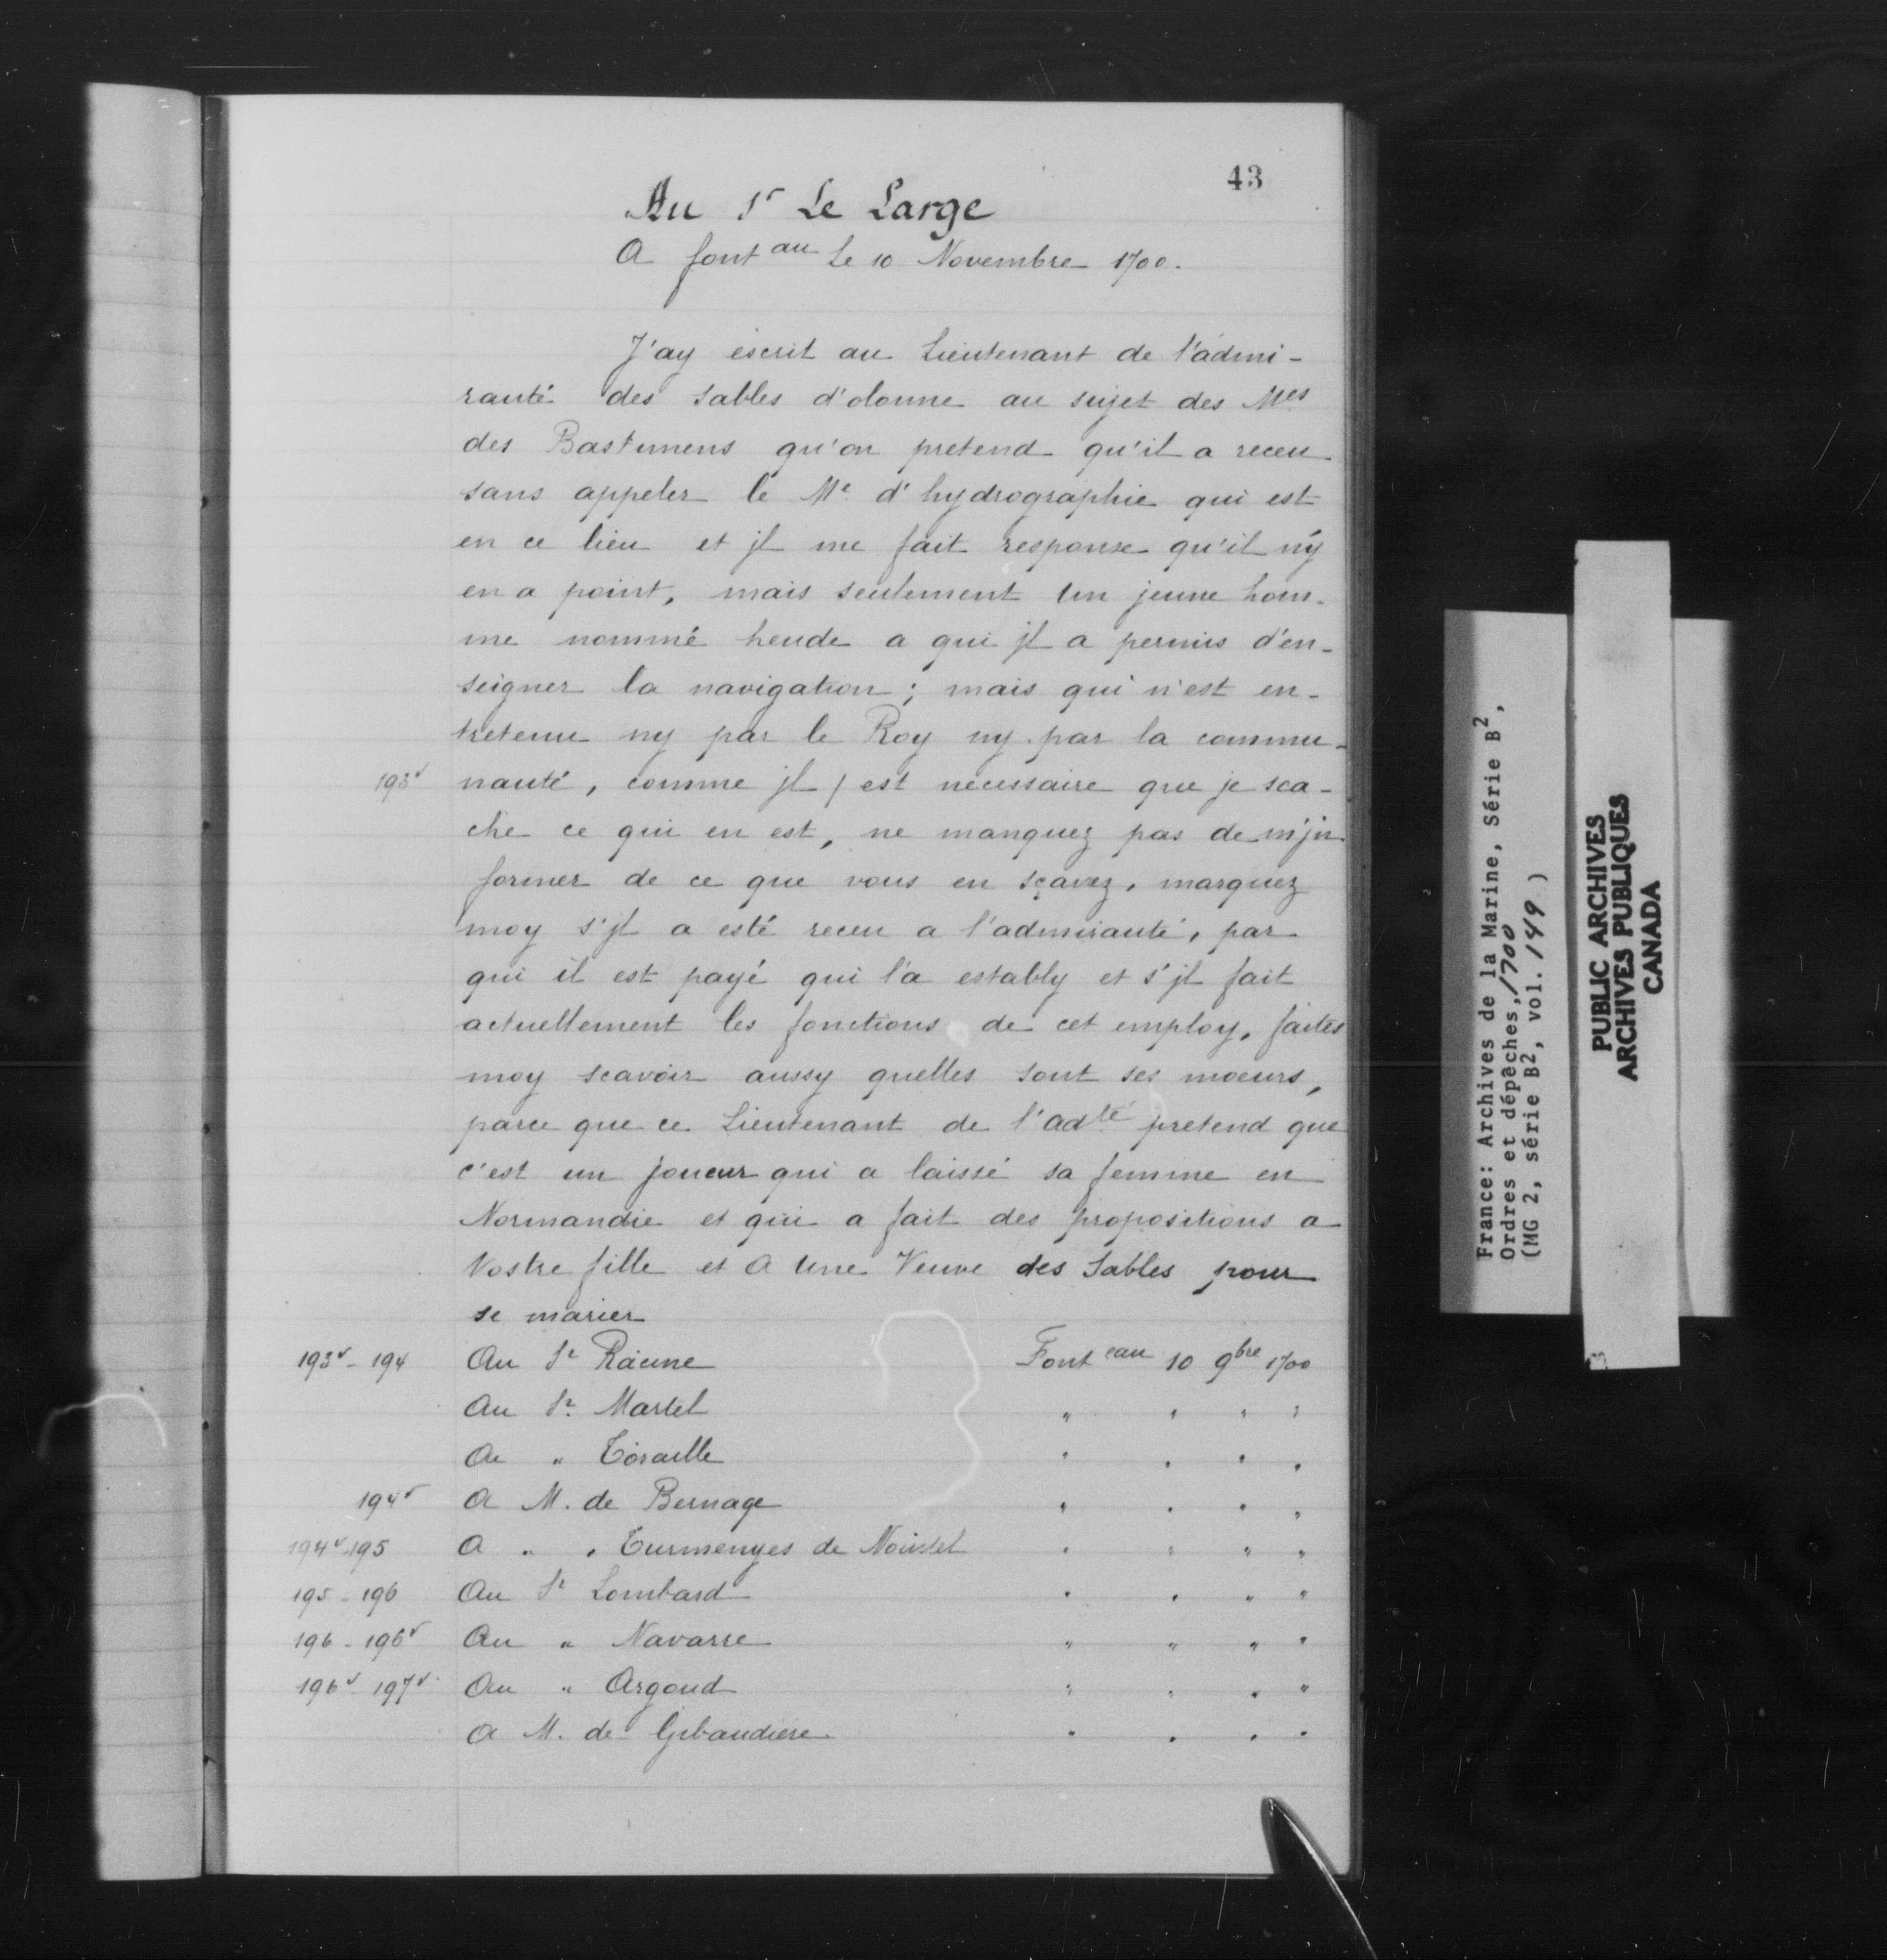 43
Au Sr Le Large
A font au Le 10 Novembre 1700.
J'ay éscrit au Lieutenant de l'admi-
rauté des Sables d'olonne au sujet des Mes
des Bastimens qu'on pretend qu'il a receu
sans appeler le Me d'hydrographie qui est
en ce lieu et jl me fait response qu'il n'y
en a point, mais seulement Un jeune hom-
me nommé heude a qui jl a permis d'en-
seigner la navigation; mais qui n'est en-
tretenu ny par le Roy ny par la commu-
193v nauté, comme jl / est necessaire que je sca-
che ce qui en est, ne manquez pas de m'jn
former de ce que vous en sçavez, marquez
moy s'jl a esté receu a l'admirauté, par
qui il est payé qui l'a estably et s'jl fait
actuellement les fonctions de cet employ, faites
moy scavoir aussy quelles sont ses moeurs,
parce que ce Lieutenant de l'adté pretend que
c'est un joueur qui a laissé sa femme en
Normandie et qui a fait des propositions a
Vostre fille et A Une Veuve des Sables pour
se marier
193v - 194 Au Sr Racine Font eau 10 9bre 1700
Au Sr Martel " " " "
Au " " " " "
194v A M. de Bernage " " " "
194v-195 A " " Turmenyes de Nointel " " " "
195 - 196 Au Sr Lombard " " " "
196 - 196v Au " Navarre " " " "
196v - 197v Au " Argoud " " " "
A M. de Gibaudiere " " " "
France: Archives de la Marine, Série B2,
Ordres et dépêches, 1700
(MG 2, série B2, vol. 149 )
PUBLIC ARCHIVES
ARCHIVES PUBLIQUES
CANADA